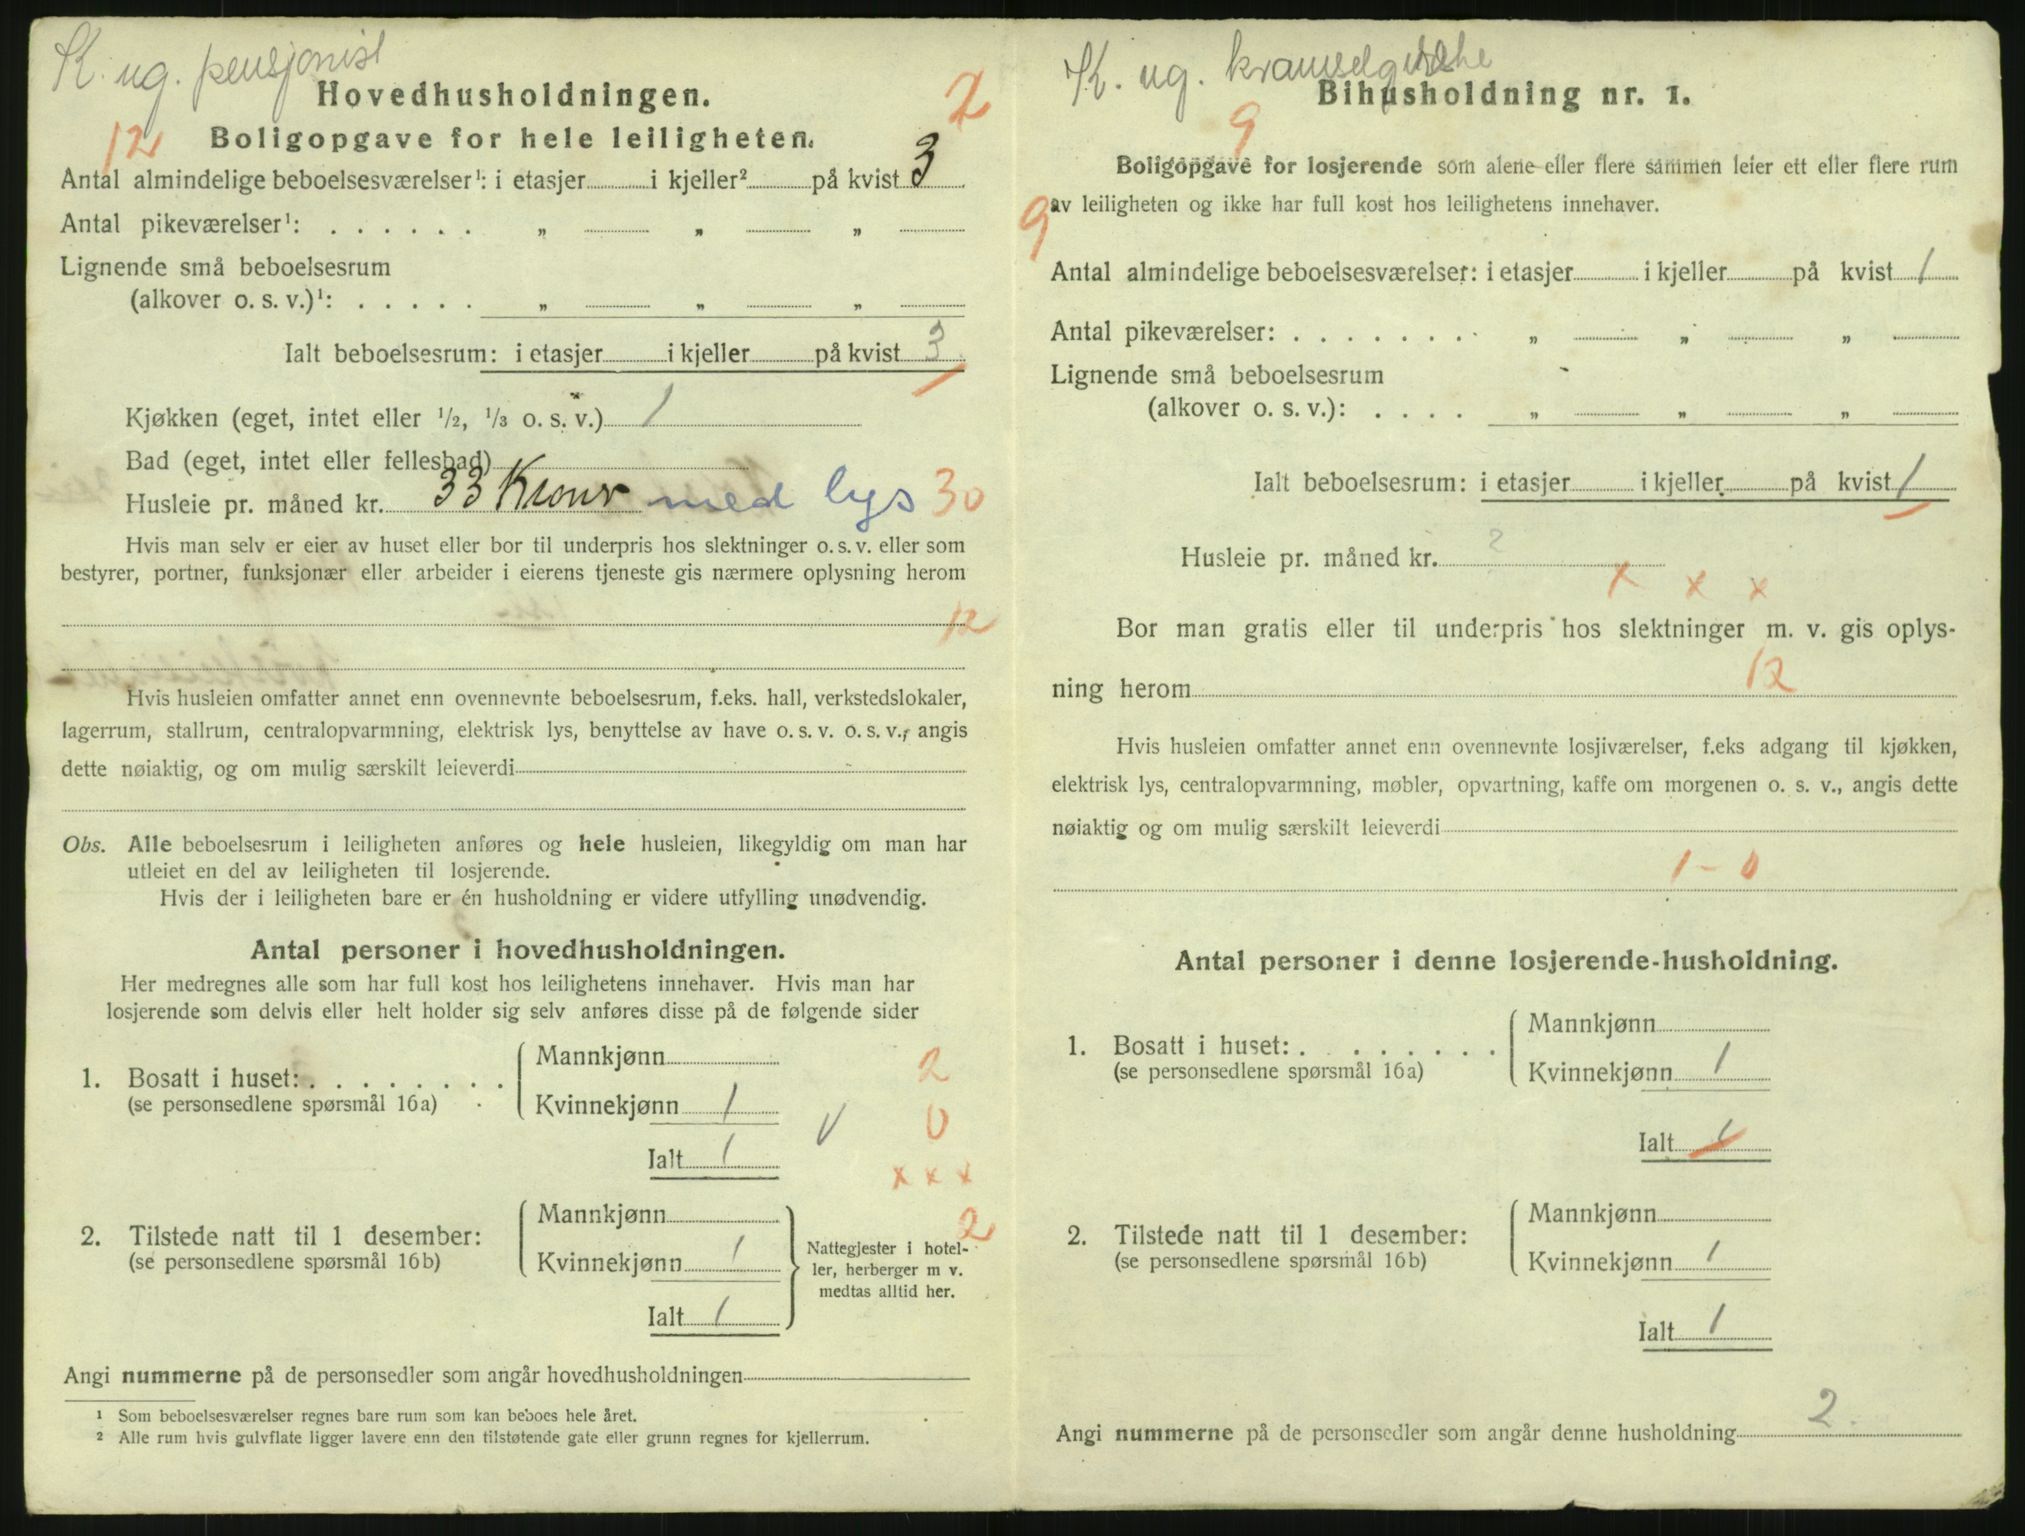 K. ug. pensjonist
Hovedhusholdningen. 2
12 Boligopgave for hele leiligheten.
Antal almindelige beboelsesværelser¹: i etasjer i kjeller² på kvist 3
Antal pikeværelser¹: . . . . . . „ „ „
Lignende små beboelsesrum
(alkover o. s. v.)¹: . . . . . „ „ „
Ialt beboelsesrum: i etasjer i kjeller på kvist 3
Kjøkken (eget, intet eller ½, ⅓ o. s. v.) 1
Bad (eget, intet eller fellesbad)
Husleie pr. måned kr. 33 Kroner med lys 30
Hvis man selv er eier av huset eller bor til underpris hos slektninger o. s. v. eller som
bestyrer, portner, funksjonær eller arbeider i eierens tjeneste gis nærmere oplysning herom
12
Hvis husleien omfatter annet enn ovennevnte beboelsesrum, f.eks. hall, verkstedslokaler,
lagerrum, stallrum, centralopvarmning, elektrisk lys, benyttelse av have o. s. v. o. s. v., angis
dette nøiaktig, og om mulig særskilt leieverdi
Obs. Alle beboelsesrum i leiligheten anføres og hele husleien, likegyldig om man har
utleiet en del av leiligheten til losjerende.
Hvis der i leiligheten bare er én husholdning er videre utfylling unødvendig.
Antal personer i hovedhusholdningen.
Her medregnes alle som har full kost hos leilighetens innehaver. Hvis man har
losjerende som delvis eller helt holder sig selv anføres disse på de følgende sider
Mannkjønn
1. Bosatt i huset: . . . . . . . . 2
(se personsedlene spørsmål 16a) Kvinnekjønn 1 0
Ialt 1 V
x x x
Mannkjønn
2. Tilstede natt til 1 desember: 2
(se personsedlene spørsmål 16b) Kvinnekjønn 1
Nattegjester i hotel-
ler, herberger m v.
medtas alltid her.
Ialt 1
Angi nummerne på de personsedler som angår hovedhusholdningen
¹ Som beboelsesværelser regnes bare rum som kan beboes hele året.
² Alle rum hvis gulvflate ligger lavere enn den tilstøtende gate eller grunn regnes for kjellerrum.
K. ug.
Bihusholdning nr. 1.
9
Boligopgave for losjerende som alene eller flere sammen leier ett eller flere rum
9 av leiligheten og ikke har full kost hos leilighetens innehaver.
Antal almindelige beboelsesværelser: i etasjer i kjeller på kvist 1
Antal pikeværelser: . . . . . . . „ „ „
Lignende små beboelsesrum
(alkover o. s. v.): . . . . „ „ „
Ialt beboelsesrum: i etasjer i kjeller på kvist 1
Husleie pr. måned kr. ?
x x x
Bor man gratis eller til underpris hos slektninger m. v. gis oplys-
ning herom 12
Hvis husleien omfatter annet enn ovennevnte losjiværelser, f.eks adgang til kjøkken,
elektrisk lys, centralopvarmning, møbler, opvartning, kaffe om morgenen o. s. v., angis dette
nøiaktig og om mulig særskilt leieverdi
1 - 0
Antal personer i denne losjerende-husholdning.
Mannkjønn
1. Bosatt i huset: . . . . . . . .
(se personsedlene spørsmål 16a) Kvinnekjønn 1
Ialt 1
Mannkjønn
2. Tilstede natt til 1 desember:
(se personsedlene spørsmål 16b) Kvinnekjønn 1
Ialt 1
Angi nummerne på de personsedler som angår denne husholdning 2.